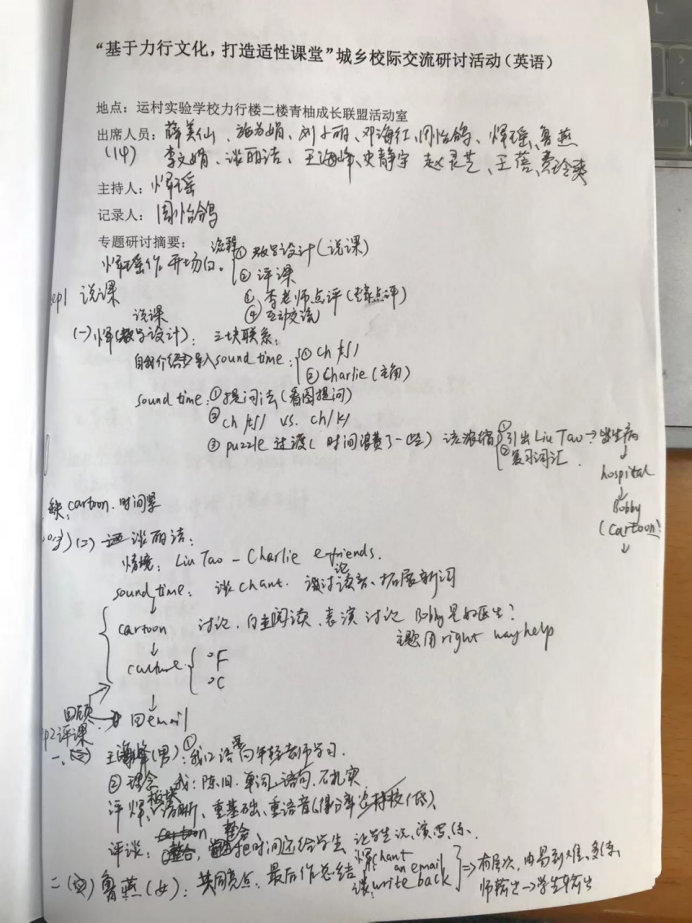 “基于力行文化，打造适性课堂”城乡校际交流研讨活动（英语）
地点：运村实验学校力行楼二楼青柚成长联盟活动室
出席人员：薛美仙、 刘小丽、邓海红、周怡鸽、恽瑶、鲁燕
(14) 李文娟、谈丽洁、王海峰、史静宇 赵灵芝、王蓓、费玲爽
主持人：恽瑶
记录人：周怡鸽
专题研讨摘要： 流程 ①教学设计(说课)
恽瑶作开场白。 ②评课
step1 说课 ③李老师点评
说课 ④互动交流
(一)恽(教学设计)： 三块联系：
自我介绍导入sound time： ①ch /tʃ/
②Charlie (主角)
sound time：①提问法(看图提问)
②ch /tʃ/ vs. ch /k/
③puzzle 过渡( 时间浪费了一些) 该浓缩 ①引出Liu Tao→生病
②复习词汇. ↓
hospital
↓
缺：cartoon. 时间 Bobby
(cartoon)
↓
(二) 谈丽洁：
情境： Liu Tao - Charlie e-friends.
sound time： chant. 讨论读音、拓展新词
cartoon 讨论、自主阅读、表演 讨论 Bobby是好医生?
↓ 主题用right way help
culture { °F
°C
↓
回顾 回email
step2 评课
一、王海峰(男)：①我口语 向年轻老师学习.
②理念 我：陈旧. 单词、语句. 不扎实.
评恽：板块清晰、重基础、重语音(得分率 低).
cartoon 整合
评谈：整合, 把时间还给学生 让学生说、演、写、练、
恽：chant
谈：an email write back ⇒ 有层次, 由易到难,
二、鲁燕(女)：共同亮点. 最后作总结 师输出→学生输出